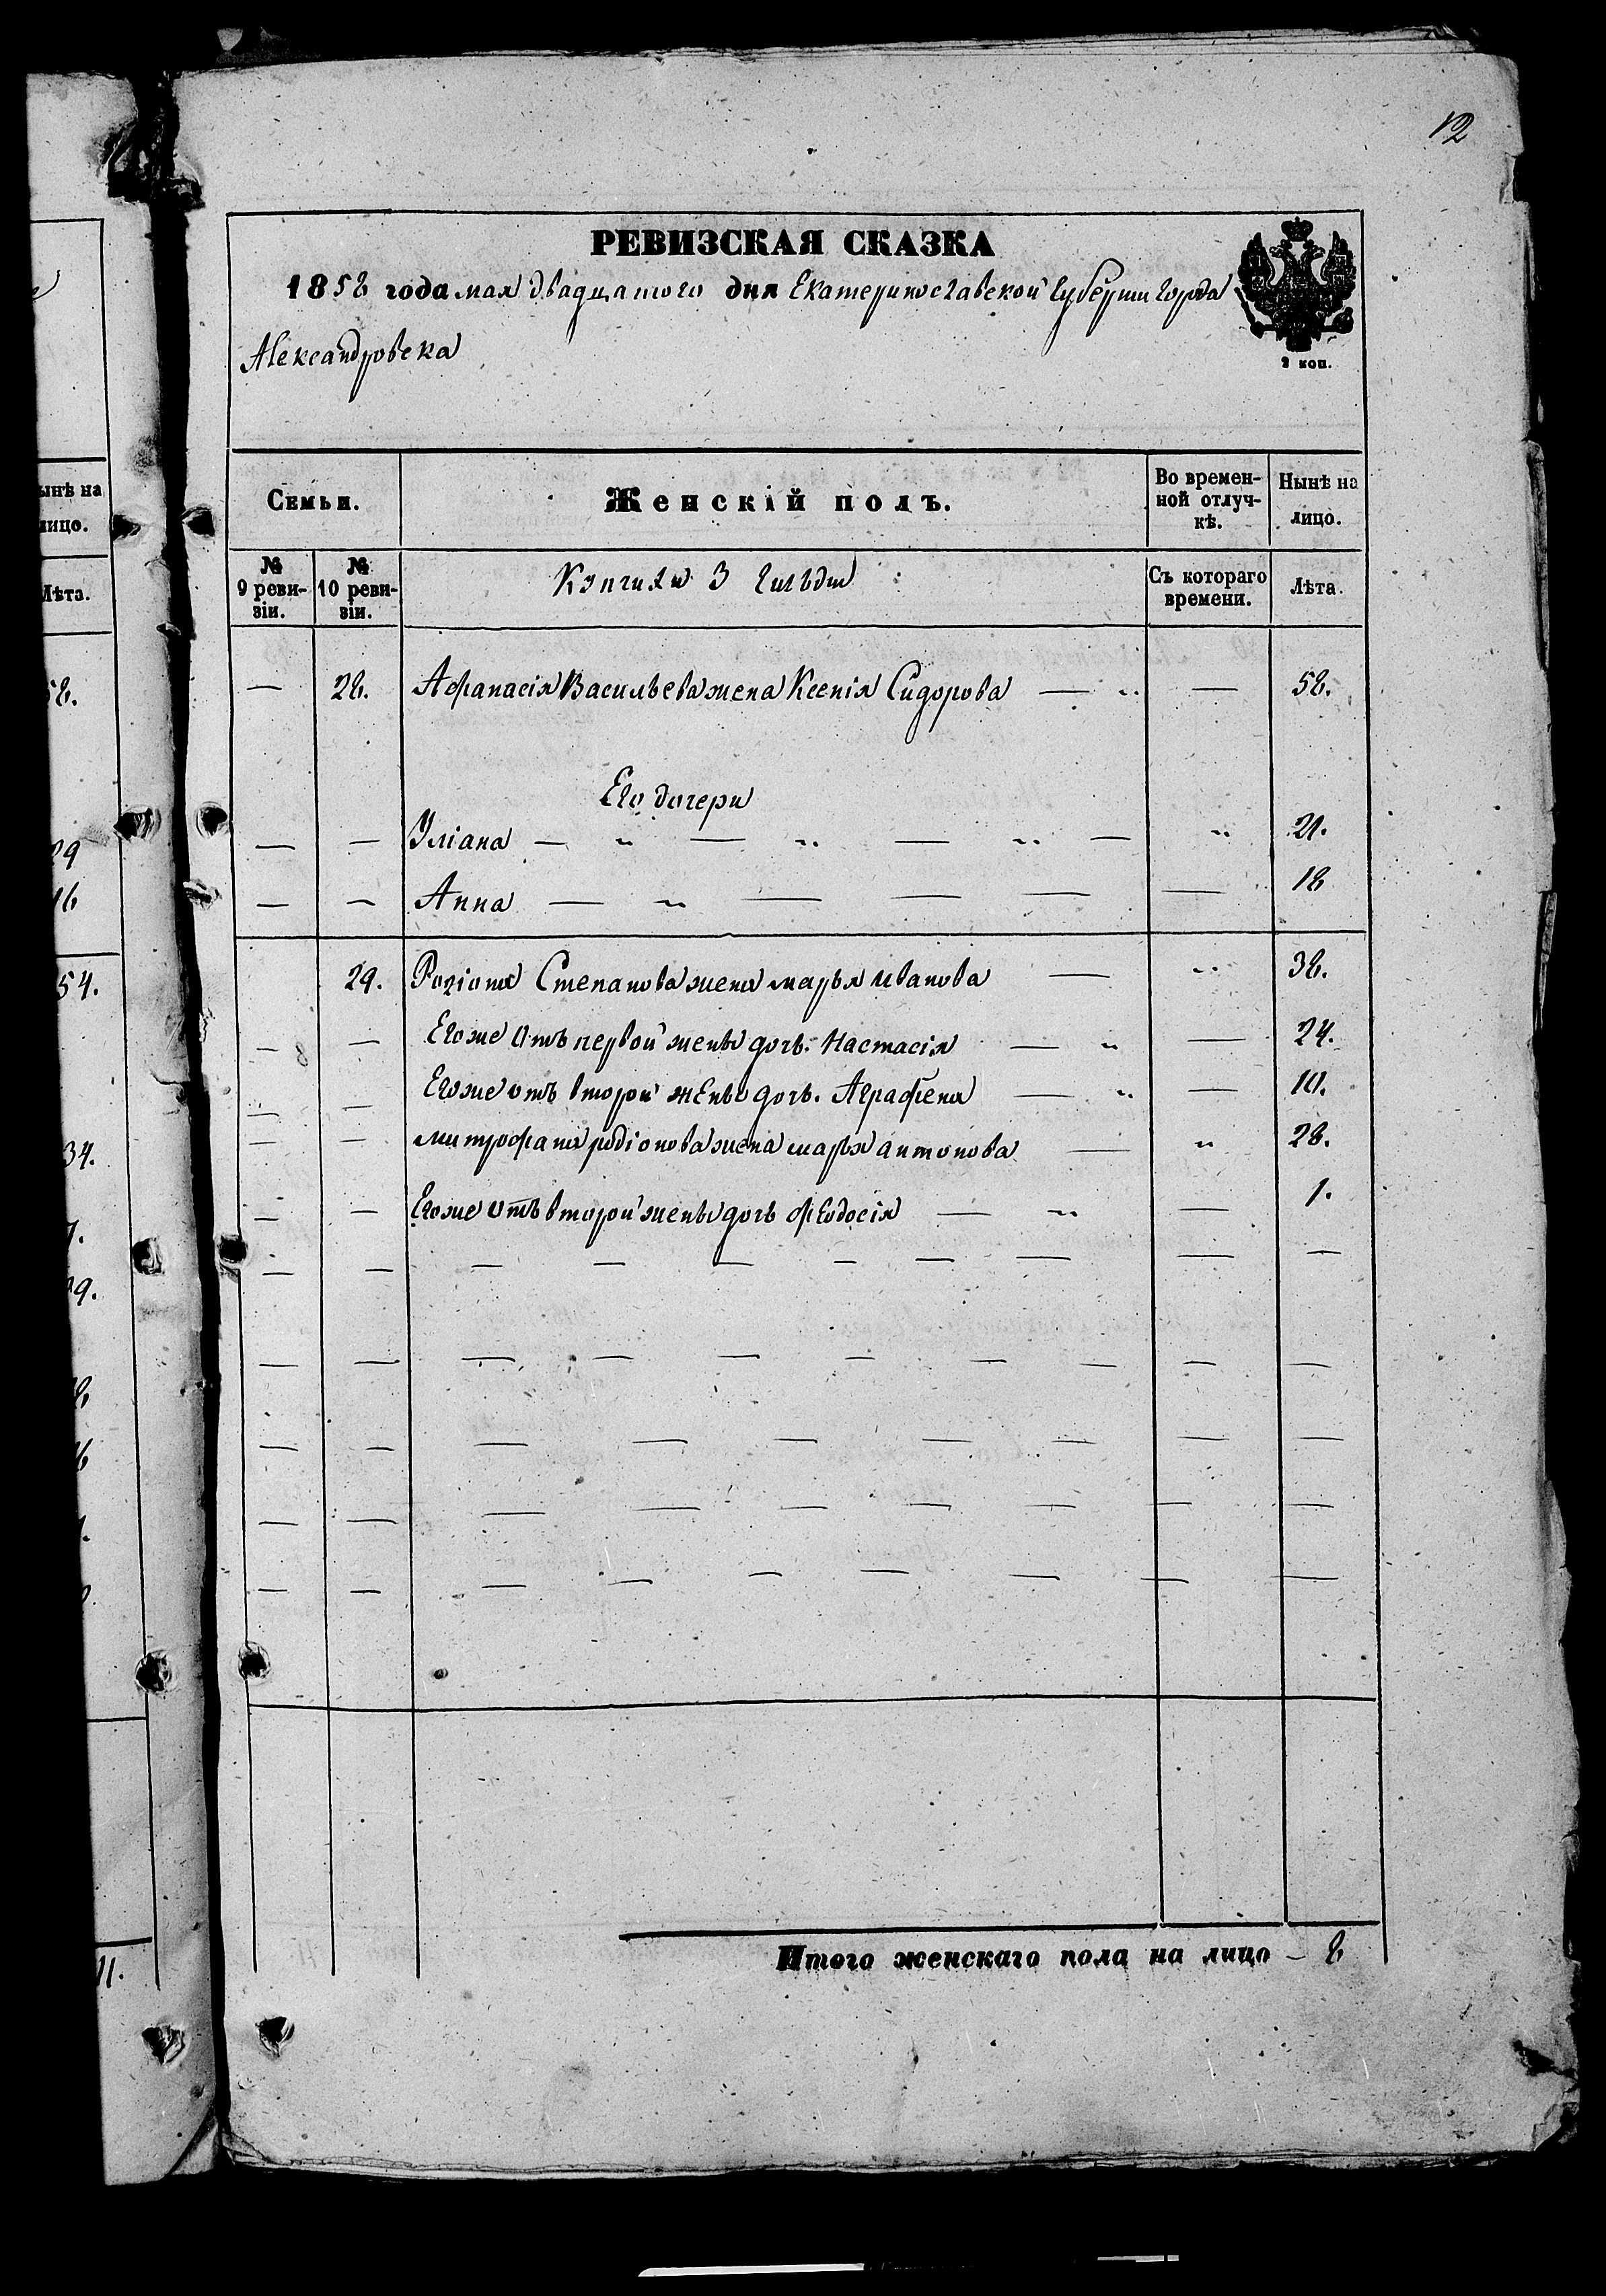 12
РЕВИЗСКАЯ СКАЗКА
1858 года мая двадцатого дня Екатеринославской Губернии города
Александровска
2 коп.
Семьи.
Женскій полъ.
Во времен-
ной отлуч-
кѣ.
Нынѣ на
лицо.
№
9 реви-
зіи.
№
10 реви-
зіи.
Купчихи 3 Гильдии
Съ котораго
времени.
Лѣта.
— 28. Афанасія Васильева жена Ксенія Сидорова — — 58.
Его дочери
— — Уліана — „ — „ — „ — „ 21.
— — Анна — „ — — — — 18
29. Родіона Степанова жена марья иванова — „ 38.
— — Егоже отъ первой жены дочь. Настасія — „ — 24.
— — Егоже отъ второй жены дочь. Аграфена — „ — 10.
— — митрофана родіонова жена марья антонова — „ 28.
— — Егоже отъ второй жены дочь феодосія — „ — 1.
Итого женскаго пола на лицо – 8
ынѣ на
лицо.
Лѣта.
58.
29
16
54.
34.
7.
29.
11.